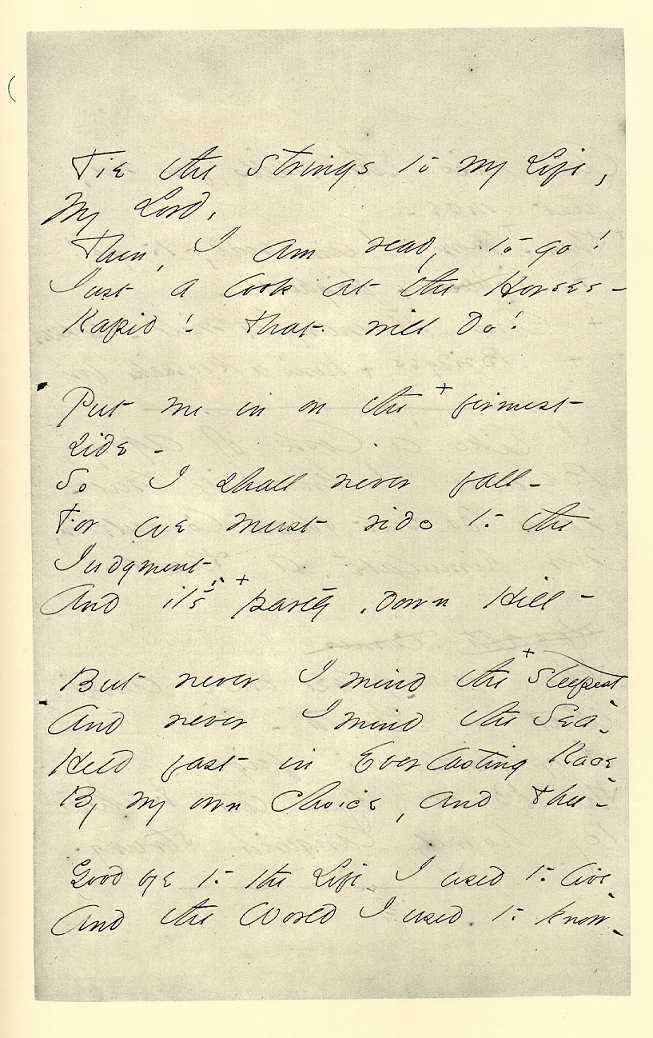 Tie the Strings to my Life,
My Lord,
Then, I am ready to go!
Just a look at the Horses –
Rapid! That will do!
Put me in on the + firmest
Side –
So I shall never fall –
For we must ride to the
Judgment –
And it's + partly, Down Hill –
But never I mind the + steepest –
And never I mind the Sea –
Held fast in Everlasting Race –
By my own Choice, and Thee –
Good bye to the Life I used to live –
And the World I used to know –